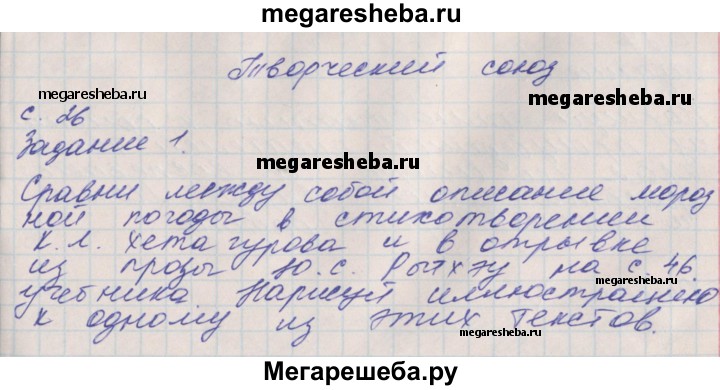 megaresheba.ru
Творческий союз
megaresheba.ru
megaresheba.ru
с. 26
Задание 1.
megaresheba.ru
Сравни между собой описание мороз
ной погоды в стихотворении
К. Л. Хетагурова и в отрывке
из прозы Ю. С. Рытхэу на с. 46.
megaresheba.ru
учебника. Нарисуй иллюстрацию
к одному из этих текстов.
megaresheba.ru
megaresheba.ru
Мегарешеба.ру